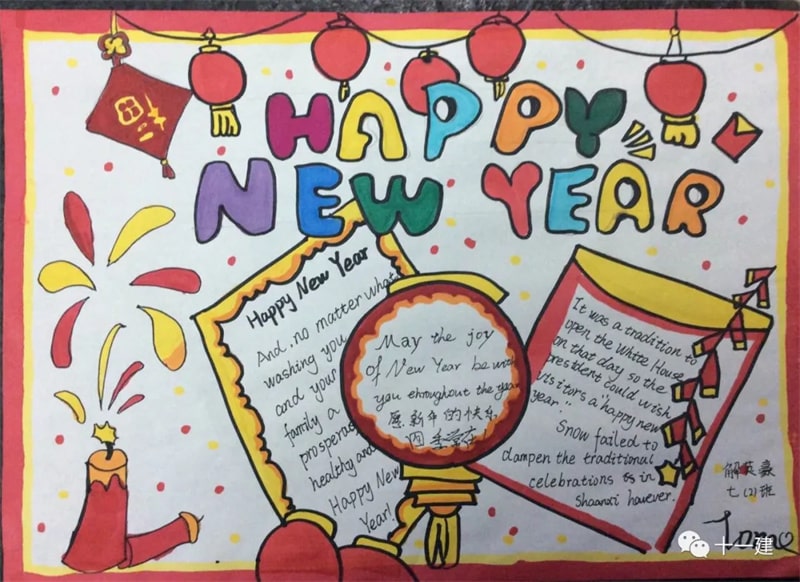 HAPPY
NEW YEAR
Happy New Year
And no matter what
washing you
and your
family a
prosperous
healthy and
Happy New
Year!
May the joy
of New Year be with
you ehroughout the year
愿新年的快乐
四季常在
It was a tradition to
open the White House
on that day so the
president could wish
visitors a "happy new
year."
Snow failed to
dampen the traditional
celebrations in
Shaanxi however.
七(2)班
十一建